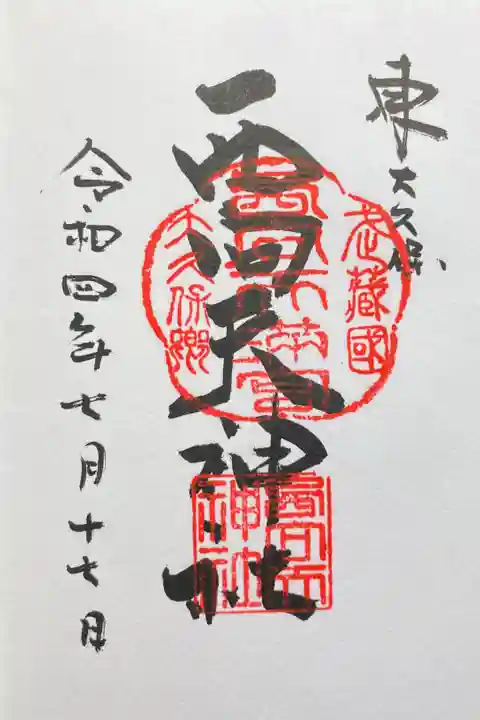 東大久保
西向天神社
令和四年七月十七日
武藏國
大久保郷
西向天神社